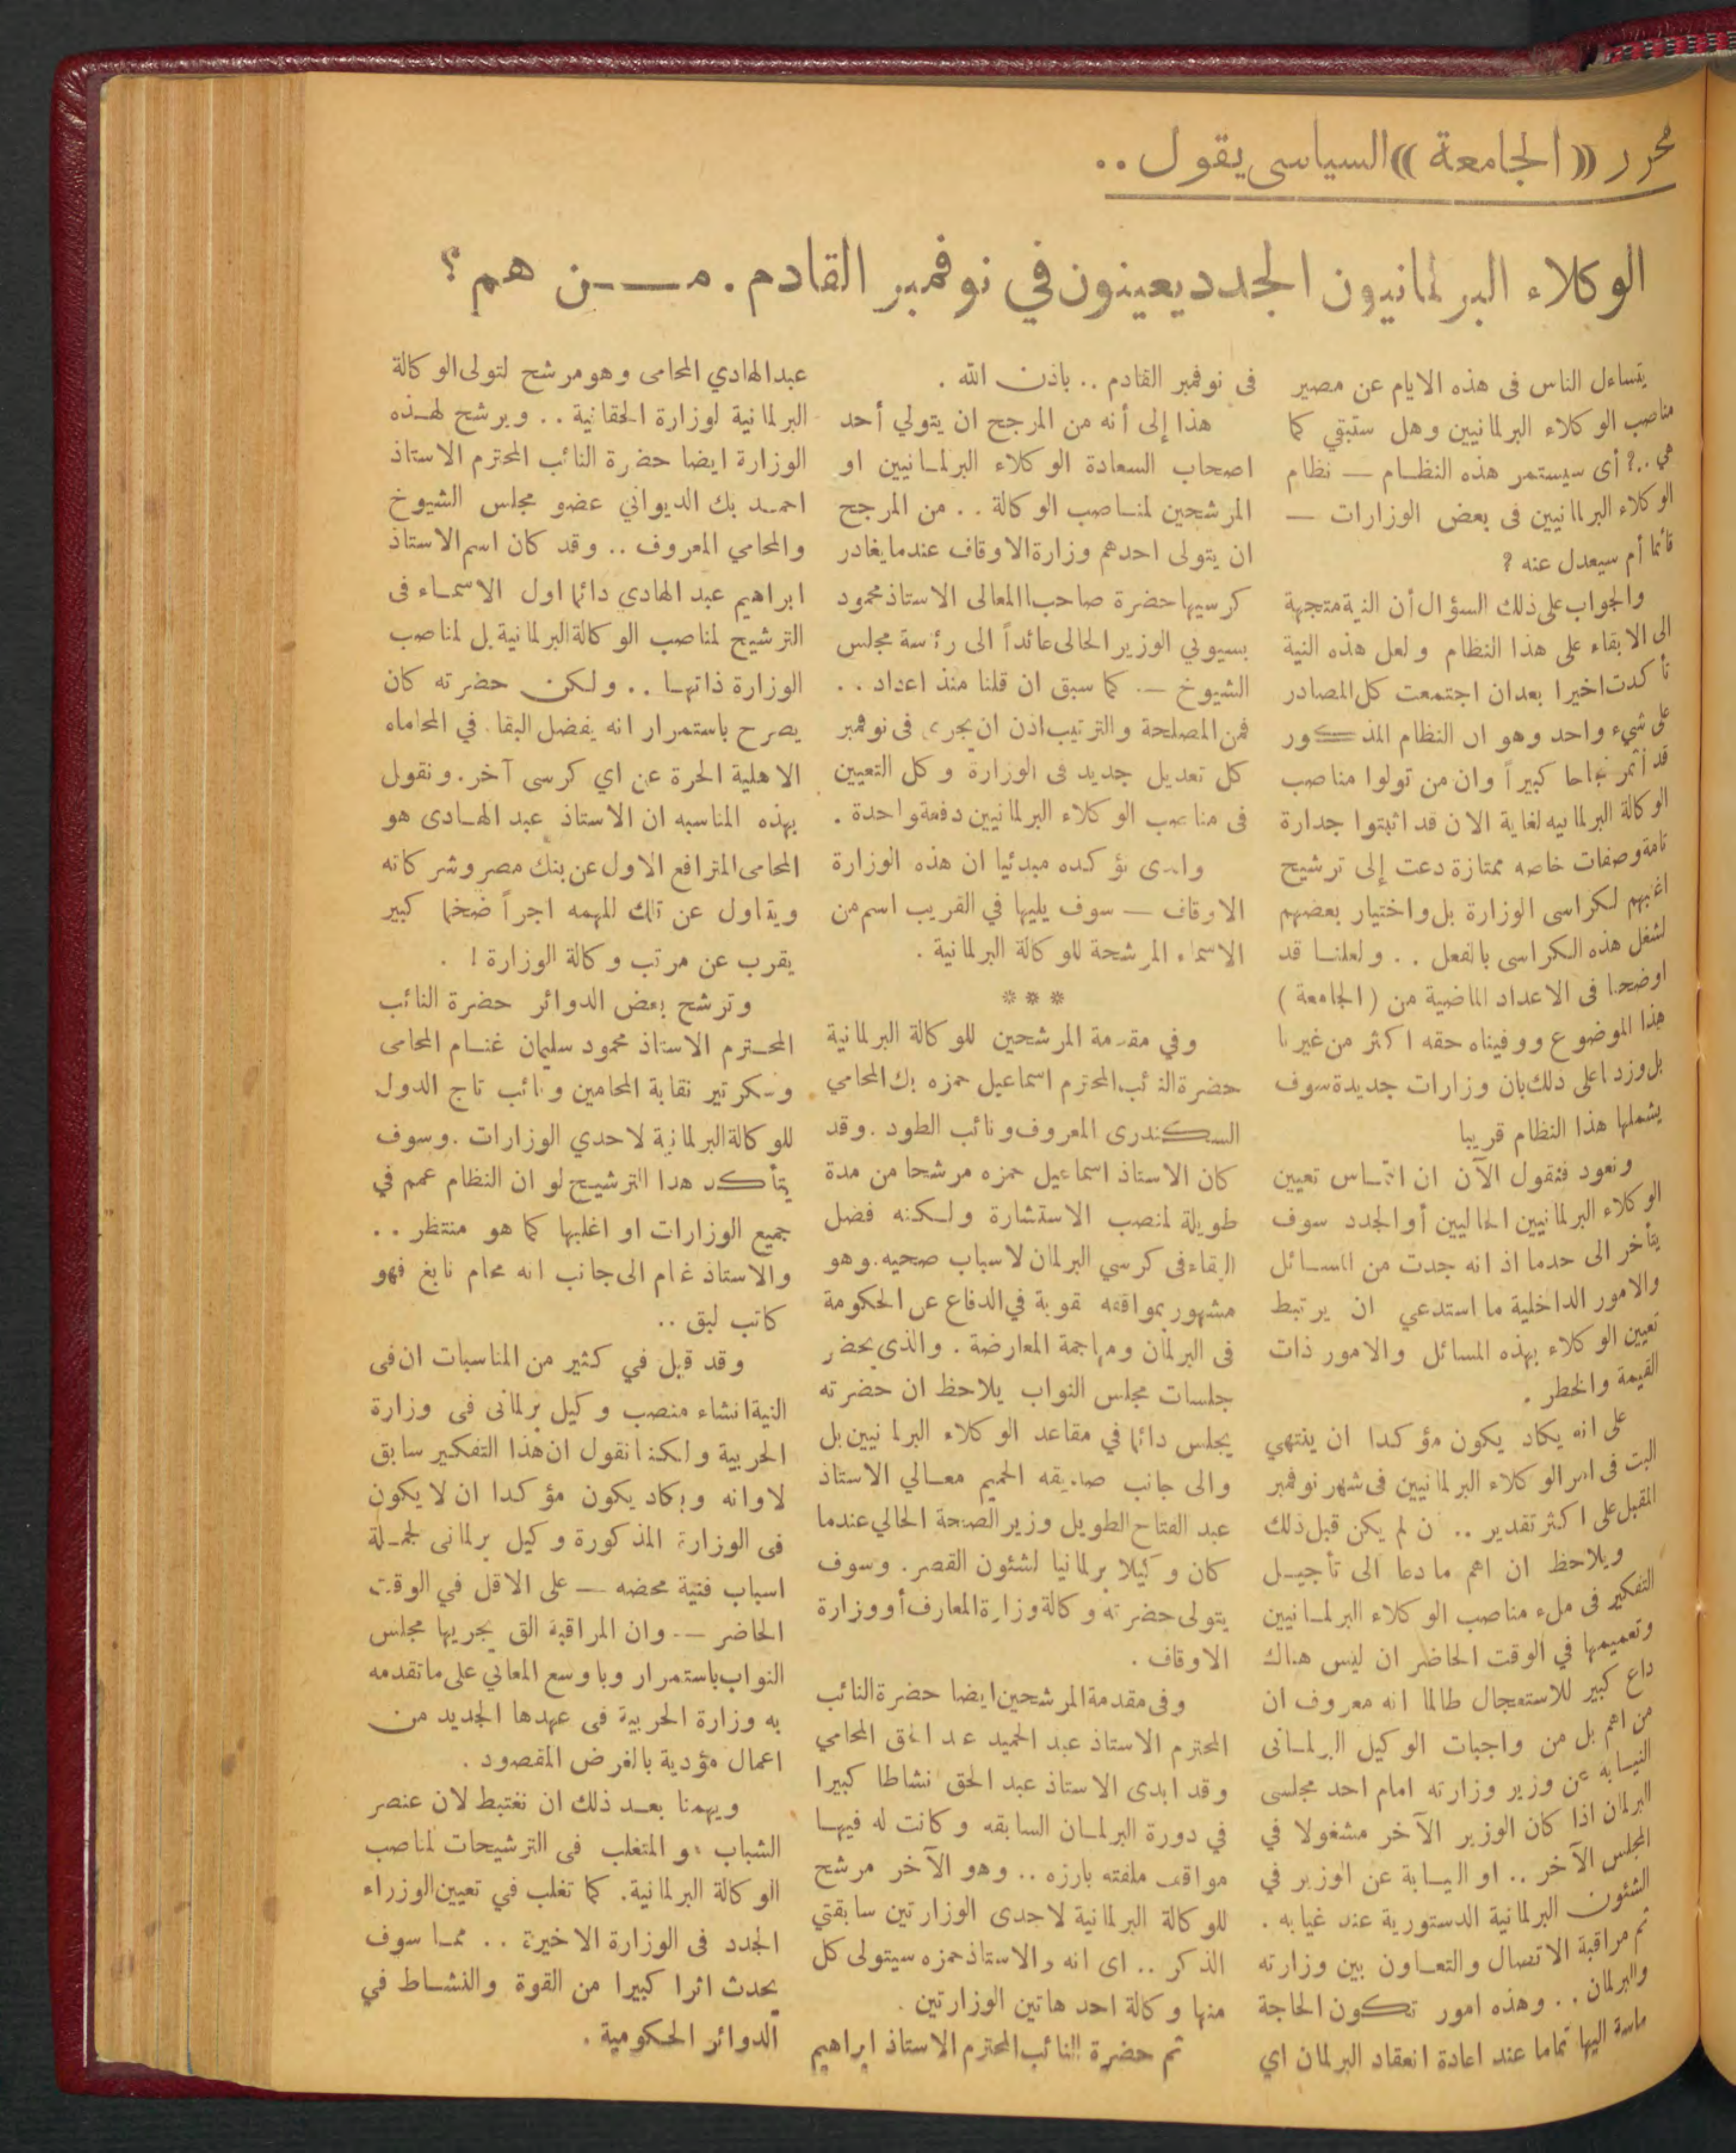 محرر «الجامعة» السياسى يقول ..
الوكلاء البرلمانيون الجدد يعينون في نوفمبر القادم . مـــن هم ؟
يتساءل الناس فى هذه الايام عن مصير
مناصب الوكلاء البرلمانيين وهل ستبقي كما
هي ..؟ أى سيستمر هذه النظـام — نظام
الوكلاء البرلمانيين فى بعض الوزارات —
قائما أم سيعدل عنه ؟
والجواب على ذلك السؤال أن النية متجهة
الى الابقاء على هذا النظام ولعل هذه النية
تأكدت اخيرا بعد ان اجتمعت كل المصادر
على شيء واحد وهو ان النظام المذكور
قد أثمر نجاحا كبيراً وان من تولوا مناصب
الوكالة البرلمانيه لغاية الان قد اثبتوا جدارة
تامة وصفات خاصه ممتازة دعت إلى ترشيح
اغلبهم لكراسى الوزارة بل واختيار بعضهم
لشغل هذه الكراسى بالفعل . . ولعلنـا قد
اوضحنا فى الاعداد الماضية من ( الجامعة )
هذا الموضوع ووفيناه حقه اكثر من غيرنا
بل وزدنا على ذلك بان وزارات جديدة سوف
يشملها هذا النظام قريبا
ونعود فنقول الآن ان التمـاس تعيين
الوكلاء البرلمانيين الحاليين أو الجدد سوف
يتأخر الى حد ما اذ انه جدت من المسـائل
والامور الداخلية ما استدعي ان يرتبط
تعيين الوكلاء بهذه المسائل والامور ذات
القيمة والخطر .
على انه يكاد يكون مؤكدا ان ينتهي
البت فى امر الوكلاء البرلمانيين فى شهر نوفمبر
المقبل على اكثر تقدير .. ن لم يكن قبل ذلك
ويلاحظ ان اهم ما دعا الى تأجيـل
التفكير فى ملء مناصب الوكلاء البرلمـانيين
وتعميمها في الوقت الحاضر ان ليس هناك
داع كبير للاستعجال طالما انه معروف ان
من اهم بل من واجبات الوكيل البرلمـانى
النيـابه عن وزير وزارته امام احد مجلسى
البرلمان اذا كان الوزير الآخر مشغولا في
المجلس الآخر .. او النيـابة عن الوزير في
الشئون البرلمانية الدستورية عند غيابه .
ثم مراقبة الاتصال والتعـاون بين وزارته
والبرلمان . . وهذه امور تكون الحاجة
ماسة اليها تماما عند اعادة انعقاد البرلمان اي
فى نوفمبر القادم .. باذن الله .
هذا إلى أنه من المرجح ان يتولي أحد
اصحاب السعادة الوكلاء البرلمـانيين او
المرشحين لمنـاصب الوكالة . . من المرجح
ان يتولى احدهم وزارة الاوقاف عندما يغادر
كرسيها حضرة صاحب المعالى الاستاذ محمود
بسيوني الوزير الحالى عائداً الى رئسة مجلس
الشيوخ — كما سبق ان قلنا منذ اعداد . .
فمن المصلحة والترتيب اذن ان يجرى فى نوفمبر
كل تعديل جديد فى الوزارة وكل التعيين
فى مناصب الوكلاء البرلمانيين دفعة واحدة .
والذى نؤكده مبدئيا ان هذه الوزارة
الاوقاف — سوف يليها في القريب اسم من
الاسماء المرشحة للوكالة البرلمانية .
* * *
وفي مقدمة المرشحين للوكالة البرلمانية
حضرة النائب المحترم اسماعيل حمزه بك المحامي
السكندرى المعروف ونائب الطود . وقد
كان الاستاذ اسماعيل حمزه مرشحا من مدة
طويلة لمنصب الاستشارة ولـكنه فضل
البقاء فى كرسي البرلمان لاسباب صحيه . وهو
مشهور بمواقفه قوية في الدفاع عن الحكومة
فى البرلمان ومهاجمة المعارضة . والذى يحضر
جلسات مجلس النواب يلاحظ ان حضرته
يجلس دائما في مقاعد الوكلاء البرلمانيين بل
والى جانب صديقه الحميم معـالي الاستاذ
عبد الفتاح الطويل وزير الصحة الحالي عندما
كان وكيلا برلمانيا لشئون القصر . وسوف
يتولى حضرته وكالة وزارة المعارف أو وزارة
الاوقاف .
وفى مقدمة المرشحين ايضا حضرة النائب
المحترم الاستاذ عبد الحميد عبد الحق المحامي
وقد ابدى الاستاذ عبد الحق نشاطا كبيرا
في دورة البرلمـان السابقه وكانت له فيهـا
مواقف ملفته بارزه .. وهو الآخر مرشح
للوكالة البرلمانية لاحدى الوزارتين سابقتي
الذكر .. اى انه والاستاذ حمزه سيتولى كل
منها وكالة احد هاتين الوزارتين .
ثم حضرة النائب المحترم الاستاذ ابراهيم
عبد الهادي المحامى وهو مرشح لتولى الوكالة
البرلمانية لوزارة الحقانية .. ويرشح لهـذه
الوزارة ايضا حضرة النائب المحترم الاستاذ
احمـد بك الديواني عضو مجلس الشيوخ
والمحامي المعروف .. وقد كان اسم الاستاذ
ابراهيم عبد الهادي دائما اول الاسمـاء فى
الترشيح لمناصب الوكالة البرلمانية بل لمناصب
الوزارة ذاتهـا .. ولكن حضرته كان
يصرح باستمرار انه يفضل البقاء في المحاماه
الاهلية الحرة عن اي كرسى آخر . ونقول
بهذه المناسبه ان الاستاذ عبد الهـادى هو
المحامى المترافع الاول عن بنك مصر وشركاته
ويتاول عن تلك المهمه اجراً ضخما كبير
يقرب عن مرتب وكالة الوزارة ! .
وترشح بعض الدوائر حضرة النائب
المحـترم الاستاذ محمود سليمان غنـام المحامى
وسكرتير نقابة المحامين ونائب تاج الدول
للوكالة البرلمانية لاحدي الوزارات . وسوف
يتأكد هذا الترشيـح لو ان النظام عمم في
جميع الوزارات او اغلبها كما هو منتظر . .
والاستاذ غنام الى جانب انه محام نابغ فهو
كاتب لبق ..
وقد قبل في كثير من المناسبات ان فى
النية انشاء منصب وكيل برلمانى فى وزارة
الحربية ولكننا نقول ان هذا التفكير سابق
لاوانه ويكاد يكون مؤكدا ان لا يكون
فى الوزارة المذكورة وكيل برلمانى لجمـلة
اسباب فنية محضه — على الاقل في الوقت
الحاضر — وان المراقبة التى يجريها مجلس
النواب باستمرار وباوسع المعاني على ماتقدمه
به وزارة الحربية فى عهدها الجديد من
اعمال مؤدية بالغرض المقصود .
ويهمنا بعـد ذلك ان نغتبط لان عنصر
الشباب هو المتغلب فى الترشيحات لمناصب
الوكالة البرلمانية . كما تغلب في تعيين الوزراء
الجدد فى الوزارة الاخيرة .. ممـا سوف
يحدث اثرا كبيرا من القوة والنشـاط في
الدوائر الحكومية .